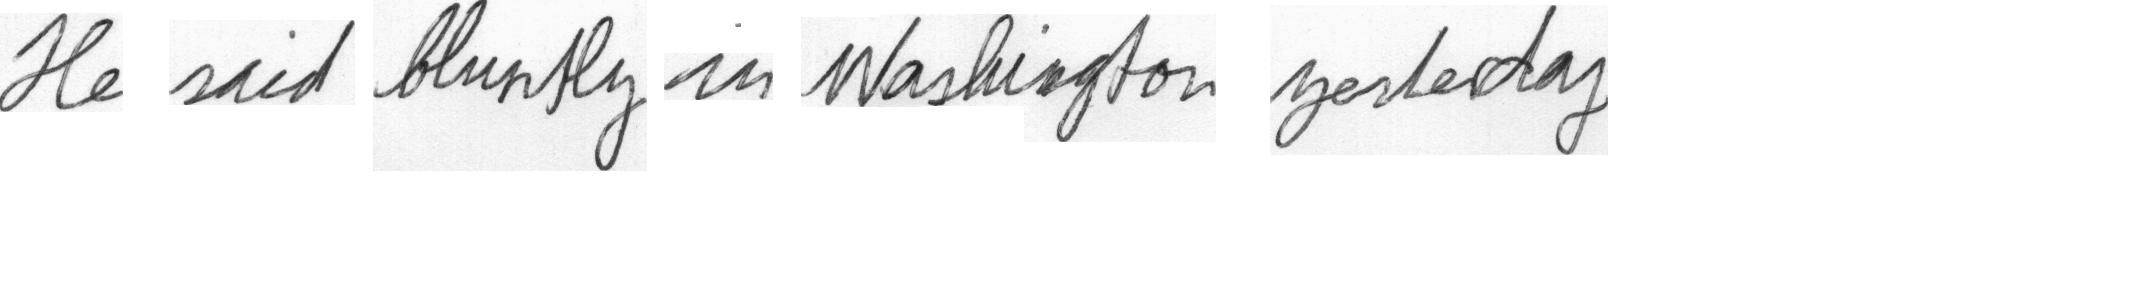 He said bluntly in Washington yesterday